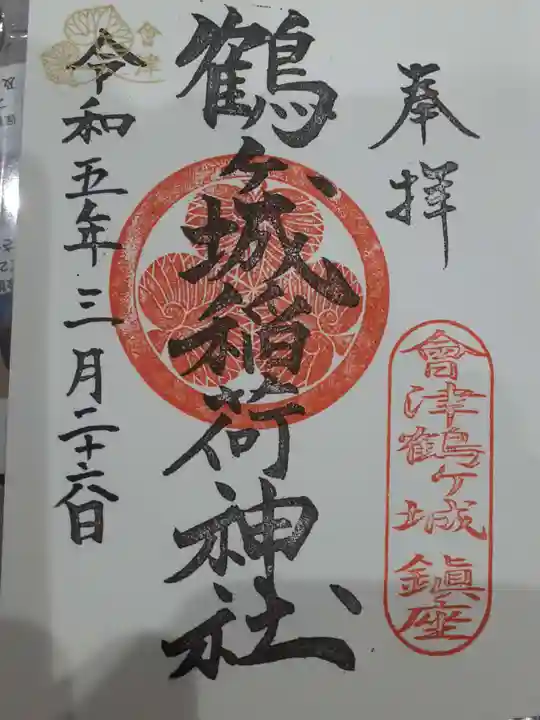 奉拝
會津鶴ヶ城鎮座
鶴ヶ城稲荷神社
會津
令和五年三月二十六日